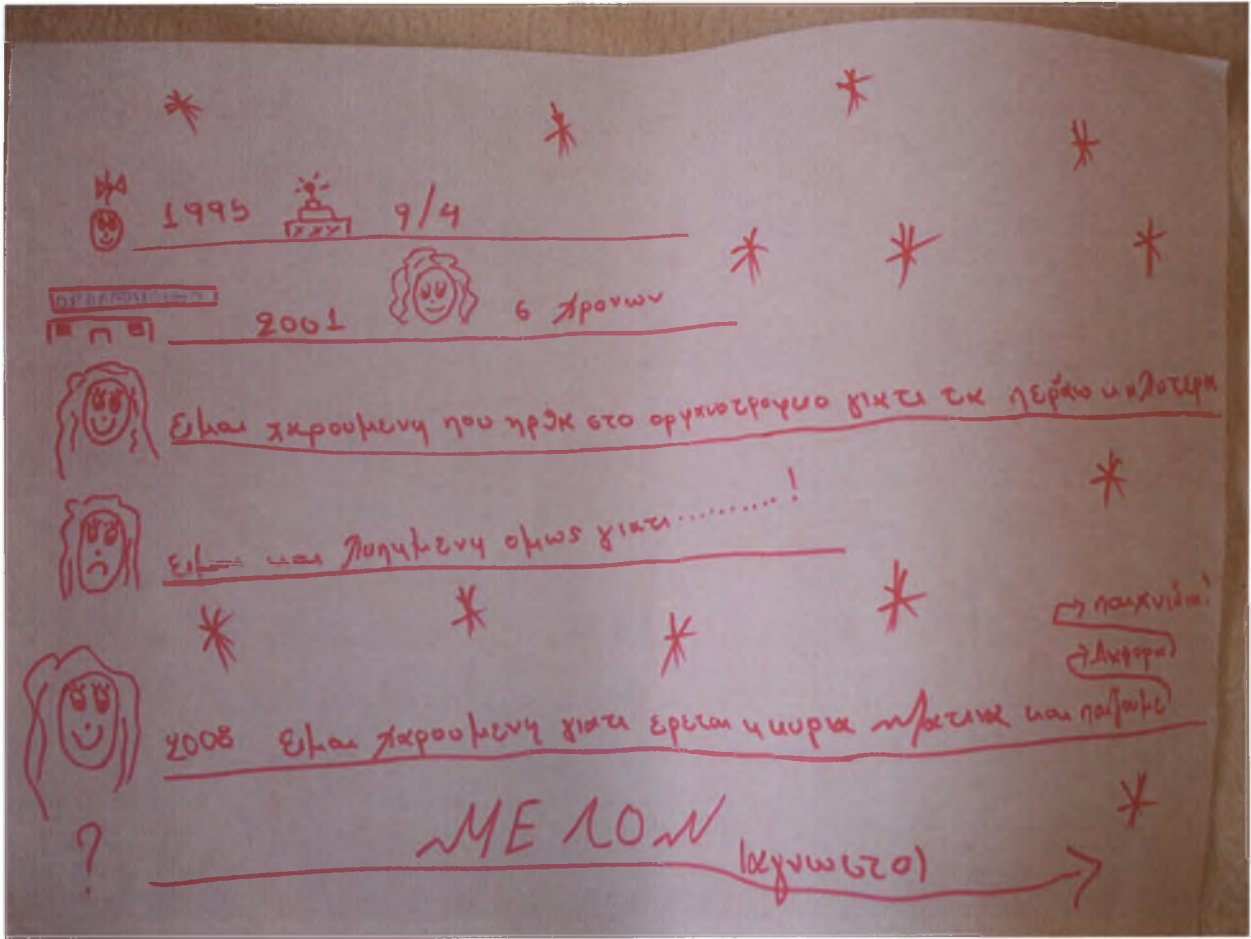 1995 9/4
2001 6 χρονων
Ειμαι χαρουμενη που ηρθα στο ορφανοτροφειο γιατι τα περαω καλοτερα
Ειμαι και λυπημενη ομως γιατι..........!
→ παιχνιδια!
→ Διαφορα
2008 Ειμαι χαρουμενη γιατι ερεται η κυρια Ματινα και παιζουμε
? ΜΕΛΟΝ (αγνωστο)